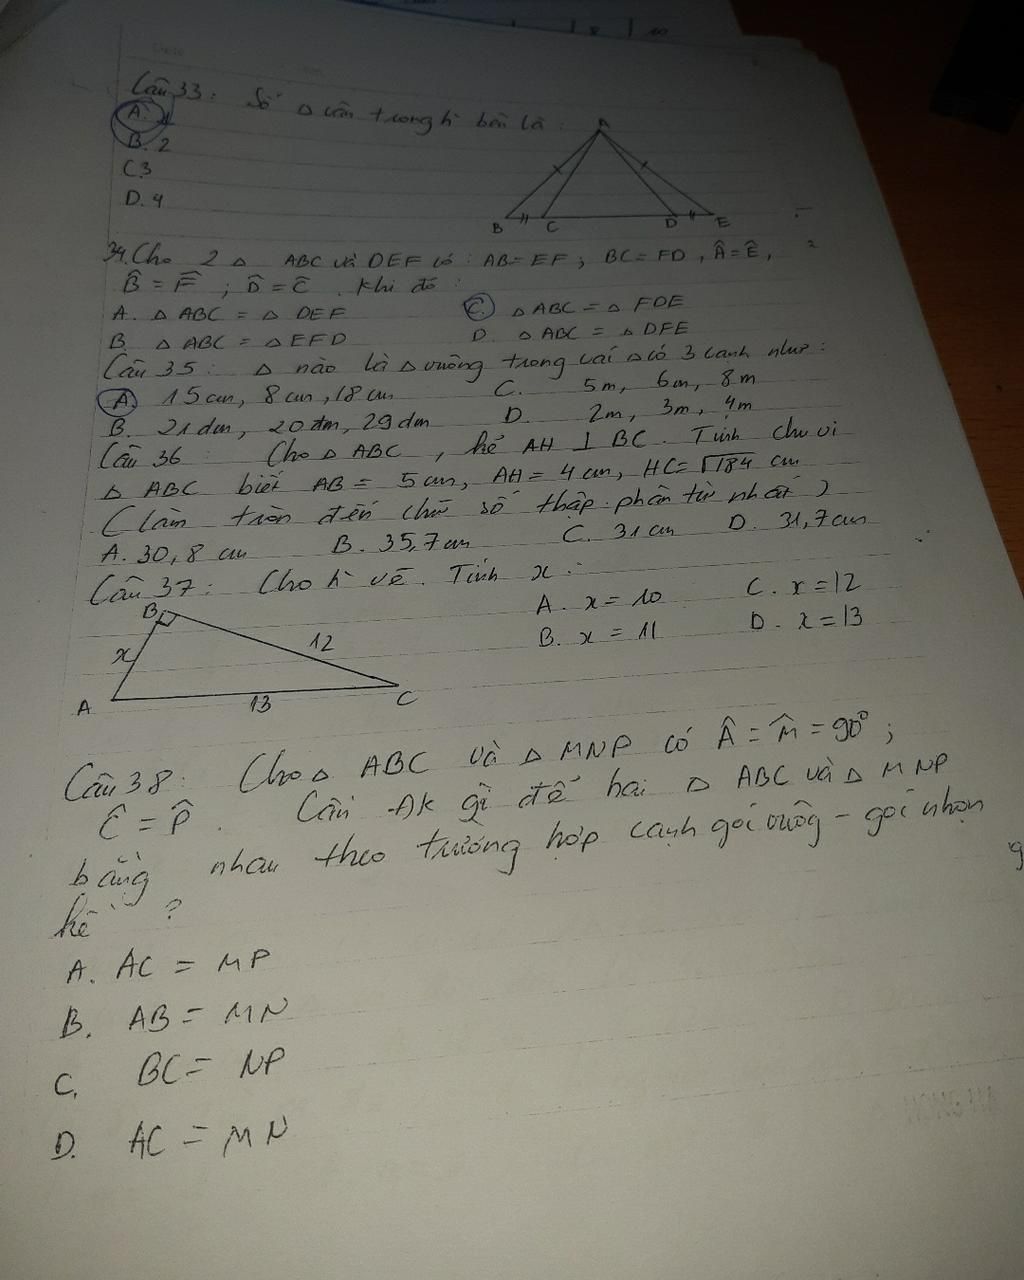 8 10
Câu 33: Số Δ cân trong h` bên là:
A.
B. 2
C.3
D. 4
A
B C D E
34. Cho 2 Δ ABC và DEF có: AB = EF; BC = FD, Â = Ê,
B̂ = F̂; D̂ = Ĉ. Khi đó:
A. Δ ABC = Δ DEF C. Δ ABC = Δ FDE
B. Δ ABC = Δ EFD D. Δ ABC = Δ DFE
Câu 35: Δ nào là Δ vuông trong các Δ có 3 cạnh như:
A. 15cm, 8cm, 18cm C. 5m, 6m, 8m
B. 21dm, 20dm, 29dm D. 2m, 3m, 4m
Câu 36 Cho Δ ABC, kẻ AH ⊥ BC. Tính chu vi
Δ ABC biết AB = 5cm, AH = 4cm, HC = √184 cm
(làm tròn đến chữ số thập phân thứ nhất)
A. 30,8 cm B. 35,7cm C. 31cm D. 31,7cm
Câu 37: Cho h` vẽ. Tính x:
A. x = 10 C. x = 12
B. x = 11 D. x = 13
B
x 12
A 13 C
Câu 38: Cho Δ ABC và Δ MNP có Â = M̂ = 90°;
Ĉ = P̂. Cần ĐK gì để hai Δ ABC và Δ MNP
bằng nhau theo trường hợp cạnh góc vuông - góc nhọn
kề ?
A. AC = MP
B. AB = MN
C. BC = NP
D. AC = MN